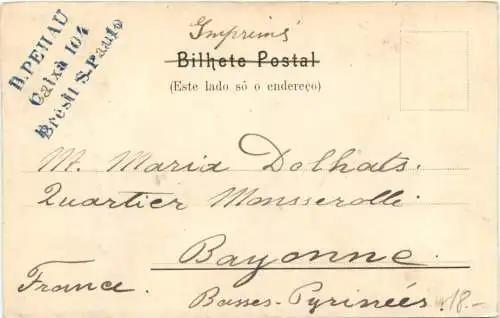 B. PEHAU
Caixa 104
Brésil S. Paulo
Imprimé
Bilhete Postal
(Este lado só o endereço)
M. Maria Dolhats.
Quartier Mousserolle
Bayonne.
France.
Basses-Pyrinées
18.-